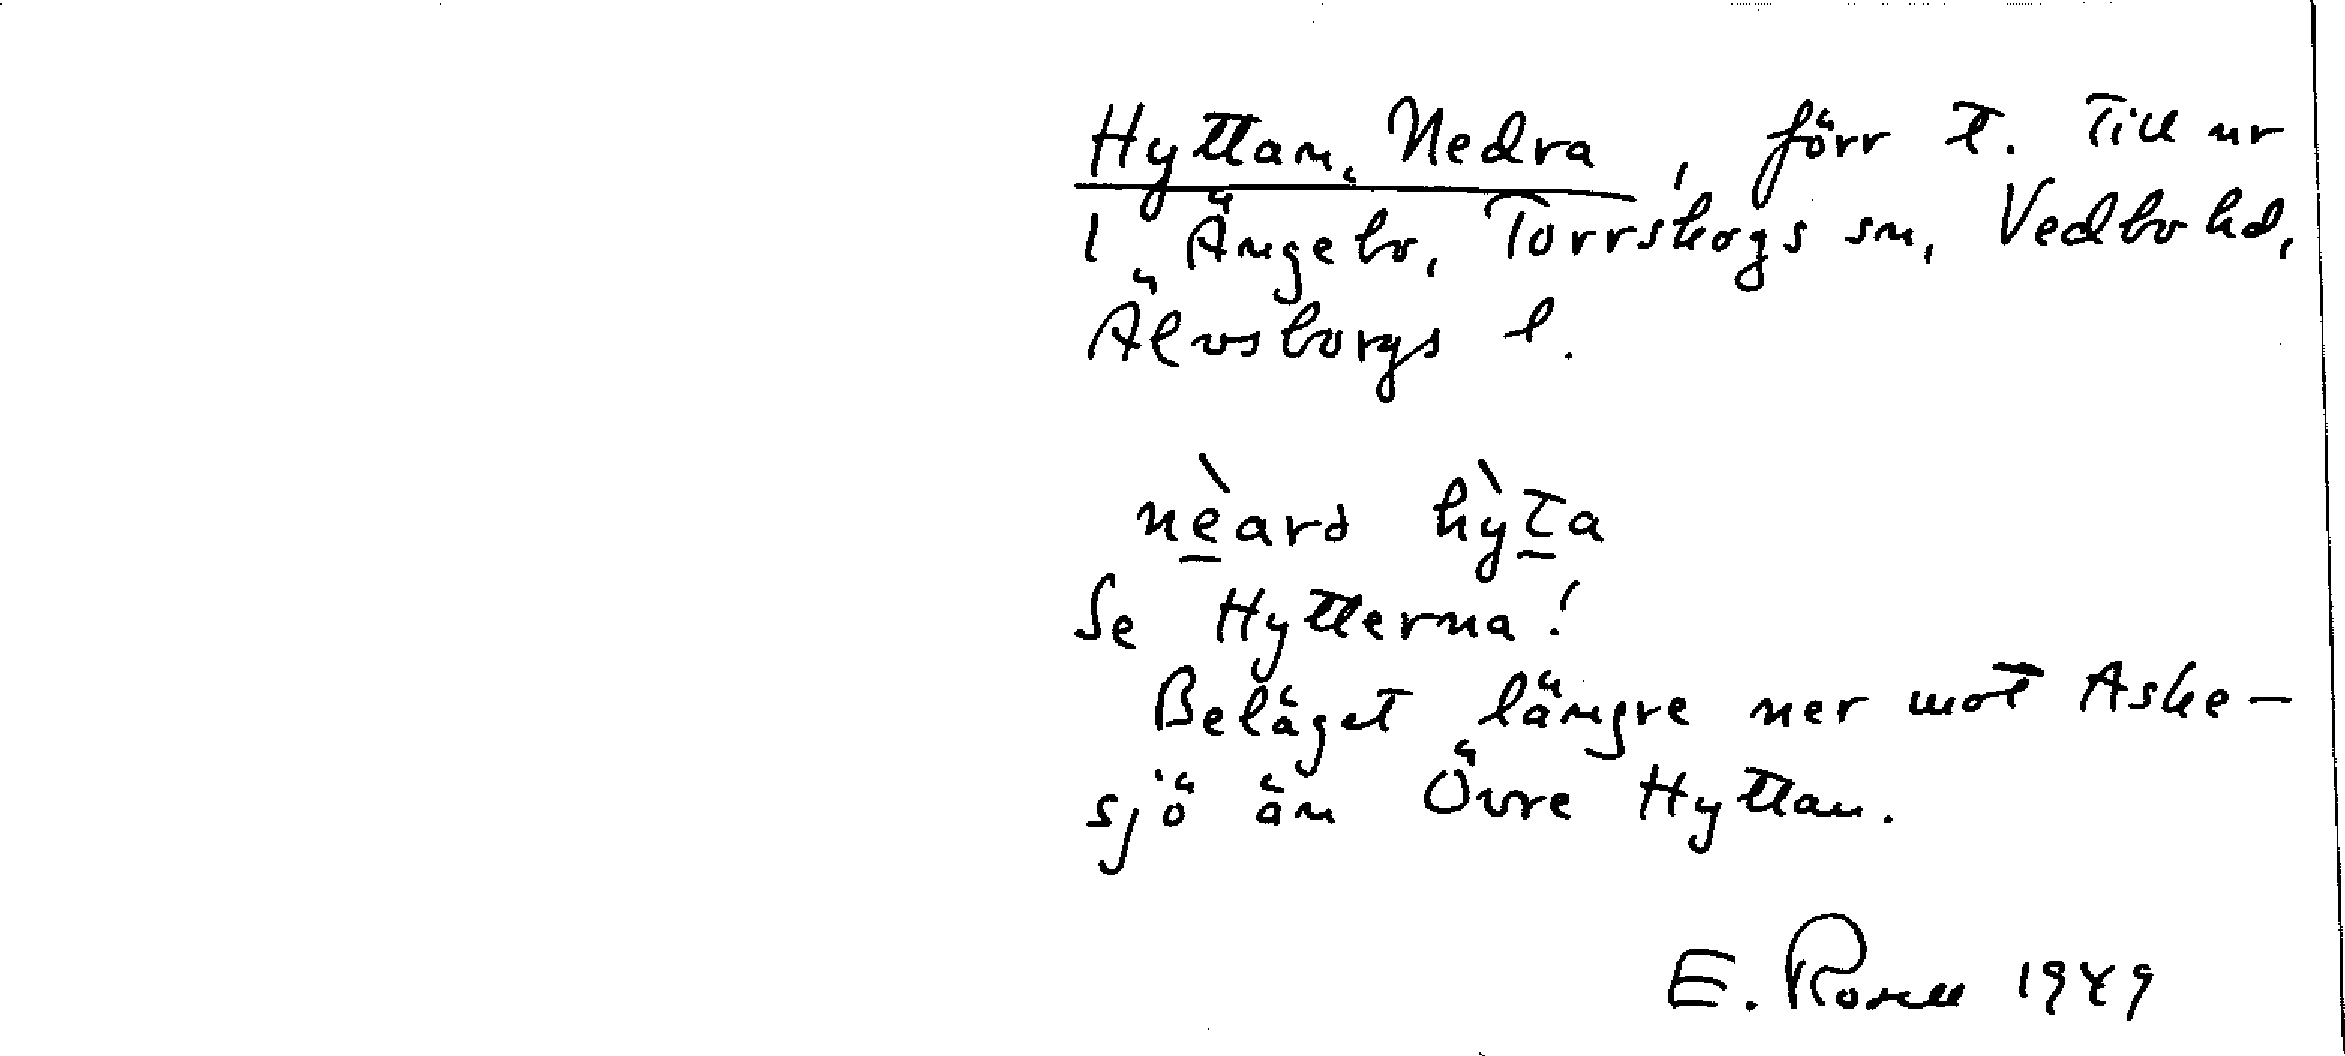 Hyttan, Nedra, förr t. Till nr
1 Ängebo, Torrskogs sn, Vedbo hd,
Älvsborgs l.
nèarə hỳta
Se Hytterna!
Beläget längre ner mot Aske-
sjö än Övre Hyttan.
E. Rosell 1949